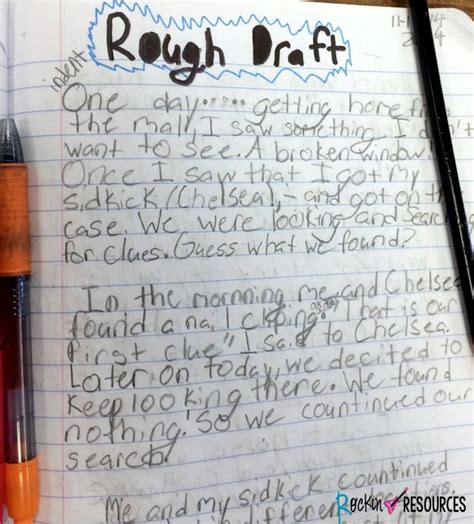 Rough Draft
indent
One day..... getting home from
the mall, I saw something I didn't
want to see. A broken window!
Once I saw that I got my
sidkick (Chelsea), and got on the
case. We were looking and
for clues. Guess what we found?
In the mornning me and Chelsea
found a nail clipping. "That is our
first clue" I said to Chelsea.
Later on today, we decited to
keep looking there. We found
nothing. So we countinued our
search
Me and my sidkick countinued
Rockin RESOURCES